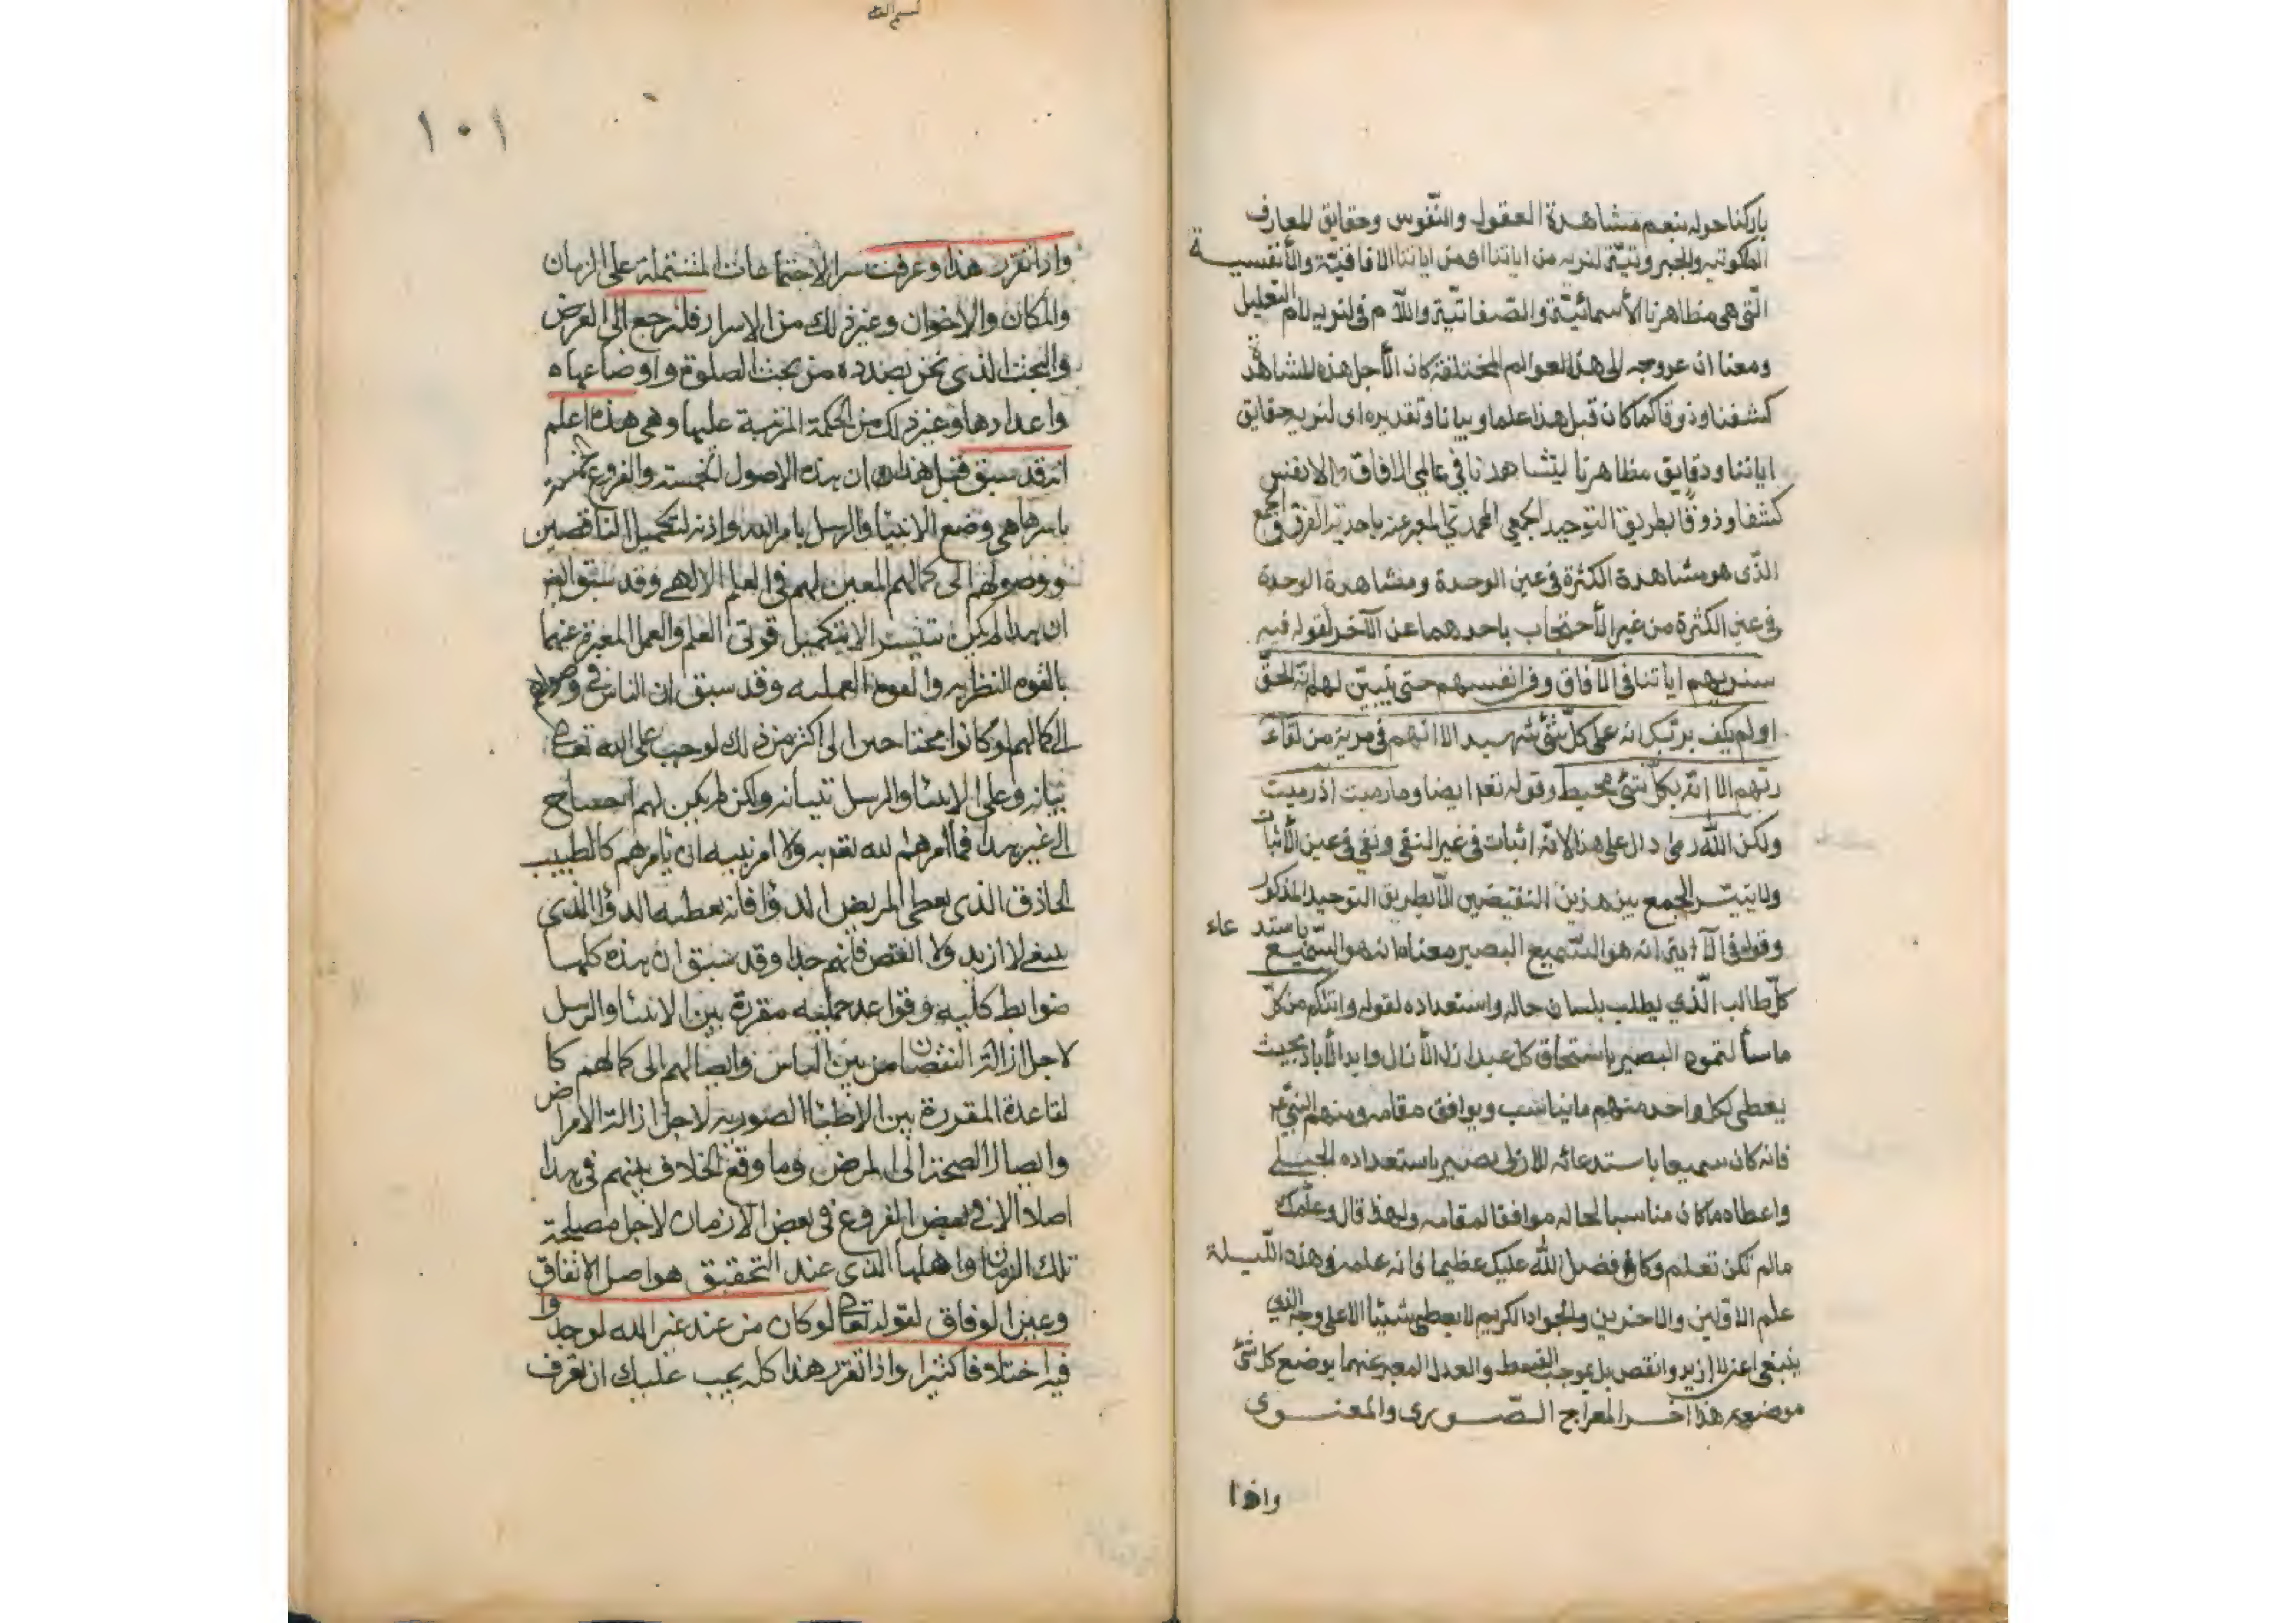 باركنا حوله بنعم مشاهدة العقول والنّفوس وحقايق المعارف
الملكوتيه والجبروتيّة لنريه من اياتنا اى من اياتنا الافاقيّة والأنفسيـة
الّتى هى مظاهرنا الأسمائيّة والصّفاتيّة واللّام فى لنريه لام التعليل
ومعنا ان عروجه الى هذه العوالم المختلفة كان لأجل هذه المشاهدة
كشفا وذوقا كما كان قبل هذا علما وبيانا وتقديره اى لنريه حقايق
اياتنا ودقايق مظاهرنا ليشاهدنا فى عالمى الافاق والانفس
كشفا وذوقًا بطريق التوحيد الجمعي المحمدي المعبر عنه باحدية الفرق والجمع
الذّى هو مشاهدة الكثرة فى عين الوحدة ومشاهدة الوحدة
فى عين الكثرة من غير الأحتجاب باحدهما عن الآخر لقوله فيه
سنريهم اياتنا فى الآفاق وفى انفسهم حتى يتبيّن لهم انّه الحقّ
اولم يكف بربّك انه على كلّ شئ شهيد الا انهم فى مرية من لقاء
ربّهم الا انّه بكلّ شئ محيط وقوله تعم ايضا وما رميت اذ رميت
ولكن اللّه رمى دال على هذا لانّه اثبات فى غير النفى ونفى فى عين الأثبات
ولا يتيسّر الجمع بين هذين النقيضين الّا بطريق التوحيد المذكور
باستدعاء
وقوله فى الآية انه هو السّميع البصير معناه انه هو السّميع
كلّ طالب الّذي يطلب بلسان حاله واستعداده لقوله واتيكم من كلّ
ما سألتموه البصير باستحقاق كل عبد ازل الأزال وابد الأباد بحيث
يعطى لكل واحد منهم ما يناسب ويوافق مقامه ومنهم النبيّ
فانه كان سميعا باستدعائه الازلى بصير باستعداده الجبلى
واعطاه ما كان مناسبا لحاله موافقا لمقامه ولهذا قال وعلّمك
مالم تكن تعلم وكان فضل اللّه عليك عظيما فانه علمه فى هذه اللّيلة
علم الاوّلين والاخرين والجواد الكريم لا يعطى شيئا الا على وجه الذي
ينبغى اعنى لا ازيد وانقص بل بموجب القسط والعدل المعبر عنهما بوضع كل شئ
موضعه هذا آخر المعراج الصّورى والمعنوى
واذا
١٠١
واذا تقرر هذا وعرفت سرّ الاجتماعات المشتملة على الزمان
والمكان والاخوان وغير ذلك من الاسرار فلنرجع الى الغرض
والبحث الذى نحن بصدده من بحث الصلوة واوضاعها
واعدادها وغير ذلك من الحكمة المرتبة عليها وهى هذه اعلم
انه قد سبق قبل هذا ان هذه الاصول الخمسة والفروع الخمسة
باسرها هى وضع الانبيا والرسل بامر الله واذنه لتكميل الناقصين
ووصولهم الى كمالهم المعين لهم فى العلم الالهى وقد سبق ايضا
ان هذا لم يكن تتيسر الا بتكميل قوتى العلم والعمل المعبرة عنهما
بالقوه النظريه والقوه العمليه وقد سبق ان الناس فى وصولهم
الى كمالهم لو كانوا محتاجين الى اكثر من ذلك لوجب على الله تعالى
بيانه وعلى الانبيا والرسل تبيانه ولكن لم يكن لهم احتياج
الى غير هذا فما امرهم الله تعم به ولا امر نبيه ان يأمرهم كالطبيب
الحاذق الذى يعطى المريض الدوا فانه يعطيه الدوا الذى
ينبغى لا ازيد ولا انقص فافهم جدا وقد سبق ان هذه كلها
ضوابط كليه وقواعد جمليه مقررة بين الانبيا والرسل
لاجل ازالة النقصان من بين الناس وايصالهم الى كمالهم كا
لقاعدة المقررة بين الاطبا الصوريه لاجل ازالة الامراض
وايصال الصحة الى المرض وما وقع الخلاف بينهم فى هذا
اصلا الا فى بعض الفروع فى بعض الازمان لاجل مصلحة
تلك الزمان واهلها الذى عند التحقيق هو اصل الاتفاق
وعين الوفاق لقوله تعالى لو كان من عند غير الله لوجدوا
فيه اختلافا كثيرا واذا تقرر هذا كله يجب عليك ان تعرف